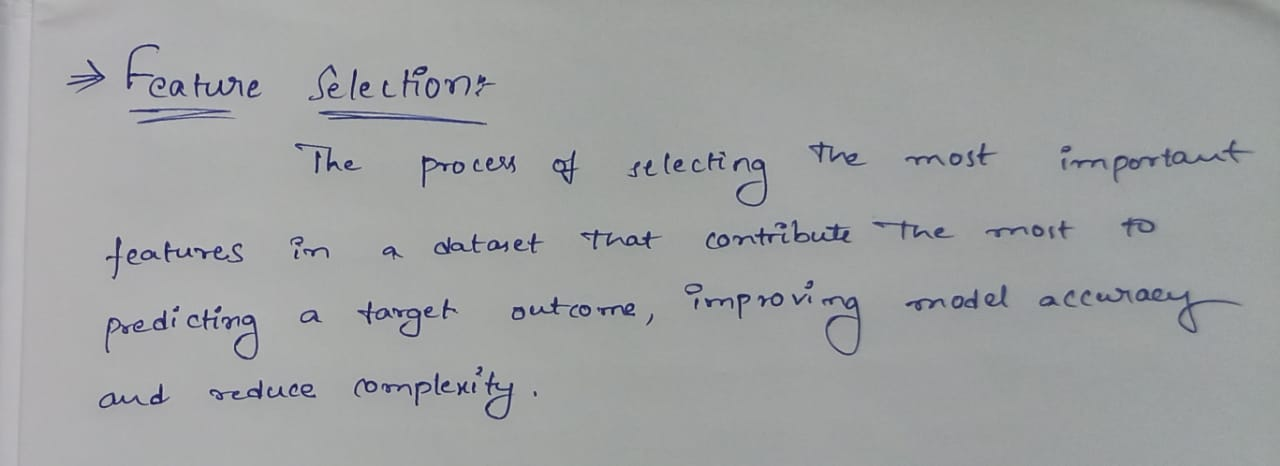 ⇒ Feature Selection:-
The process of selecting the most important
features in a dataset that contribute the most to
predicting a target outcome, improving model accuracy
and reduce complexity.